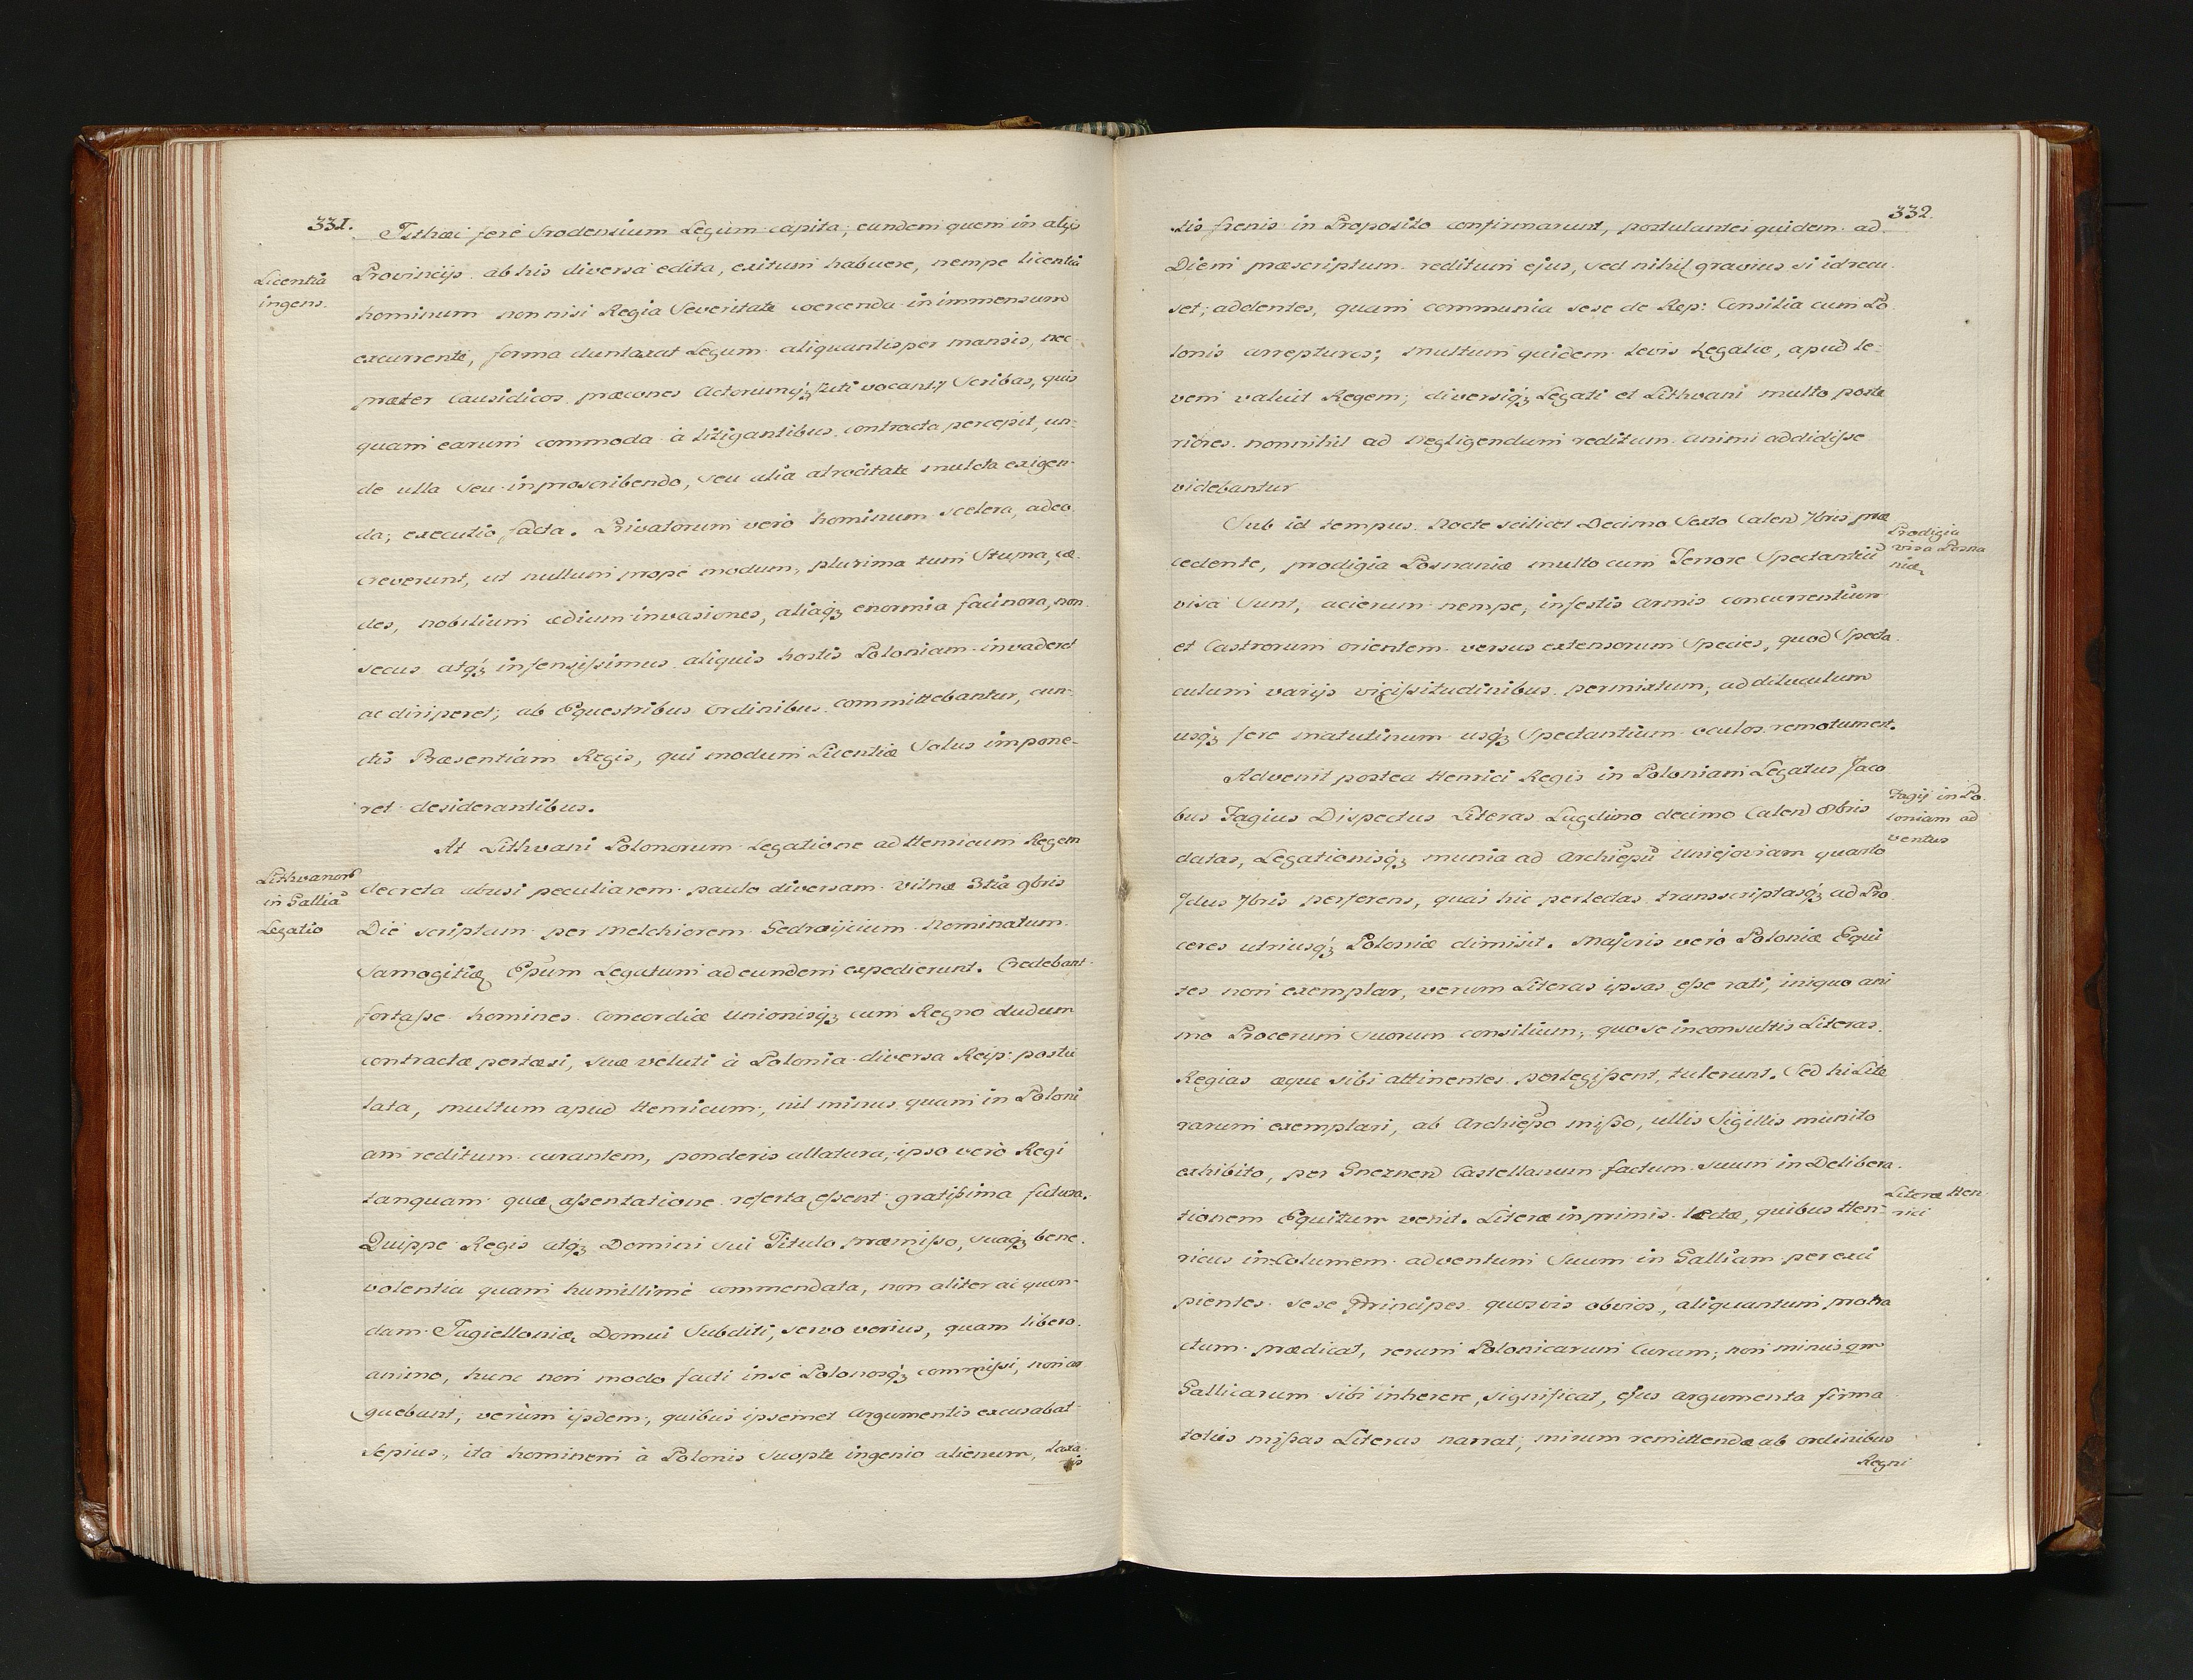 331.
Isthæc fere Srodensium Legum capita, eundem quem in alijs
Provincijs ab his diversa edita, exitum habuere, nempe licentia
Licentia
ingens.
hominum non nisi Regia Severitate coercenda in immensum
excurrente, forma duntaxat Legum aliquantisper mansis, nec
præter causidicos præcones Actorumq; uti vocant Scribas, quis
quam earum commoda à litigantibus contracta percepit, un-
de ulla seu in proscribendo, seu alia atrocitate mulcta exigen-
da, executio facta. Privatorum verò hominum scelera, adeo
creverunt, ut nullum propè modum, plurima tum Stupra, cæ-
des, nobilium ædium invasiones, aliaq; enormia facinora, non
secus atq; infensissimus aliquis hostis Poloniam invaderet
ac diriperet, ab Equestribus Ordinibus committebantur, cun-
ctis Præsentiam Regis, qui modum Licentiæ Solus impone-
ret desiderantibus.
At Lithvani Polonorum Legatione ad Henricum Regem
Lithvanorũ
in Galliã
Legatio
decreta abusi peculiarem paulo diversam Vilnæ 3tia 9bris
Die scriptam per Melchiorem Gedroijcium Nominatum
Samogitiæ Epũm Legatum ad eundem expedierunt. Credebant
fortasse homines Concordiæ Unionisq; cum Regno dudum
contractæ pertæsi, suæ veluti à Polonia diversa Reip: postu
lata, multum apud Henricum, nil minus quam in Poloni
am reditum curantem, ponderis allatura, ipso verò Regi
tanquam quæ assentatione referta essent gratissima futura.
Quippe Regis atq; Domini sui Titulo præmisso, suaq; bene-
volentia quam humillimè commendata, non aliter ac quon-
dam Jagielloniæ Domui Subditi, servo verius, quam libero
animo, hunc non modo facti in se Polonosq; commissi, non ar
guebant, verùm ijsdem, quibus ipsemet Argumentis excusabat
sepius, ita hominem à Polonis suopte ingenio alienum, laxa
tis
332.
tis frenis in Proposito confirmarunt, postulantes quidem ad
Diem præscriptum reditum ejus, sed nihil gravius si id secu
set; addentes, quam communia sese de Rep: Consilia cum Po
lonis arrepturos; multum quidem levis Legatio, apud le-
vem valuit Regem, diversiq; Legati et Lithvani multo poste
riores nonnihil ad negligendum reditum animi addidisse
videbantur
Sub id tempus Nocte scilicet Decimo Sexto Calen) 7bris præ
Prodigia
visa Posna
niæ
cedente, prodigia Posnaniæ multo cum Terrore Spectantiũ
visa Sunt, acierum nempe, infestis Armis concurrentium
et Castrorum orientem versus extensorum Species, quod Specta
culum varijs vicissitudinibus permixtum, ad diluculum
usq; fere matutinum usq; Spectantium oculos remotum est.
Advenit postea Henrici Regis in Poloniam Legatus Jaco
Fagij in Po
loniam ad
ventus
bus Fagius Dispectus Literas Lugduno decimo Calen) 8bris
datas, Legationisq; munia ad Archiepũ Uniejoviam quarto
Idus 7bris perferens, quas hic perlectas transscriptasq; ad Pro
ceres utriusq; Poloniæ dimisit. Majoris verò Poloniæ Equi
tes non exemplar, verum Literas ipsas esse rati, iniquo ani
mo Procerum Suorum consilium, quo se inconsultis Literas
Regias æque sibi attinentes perlegissent, tulerunt. Sed hi Lite
rarum exemplari, ab Archiepo misso, ullis Sigillis munito
exhibito, per Gnezneñ Castellanum factum suum in Delibera
tionem Equitum venit. Literæ inprimis lectæ, quibus Hen-
Literæ Hen
rici
ricus incolumem adventum Suum in Galliam per excu
pientes sese Principes quosvis obvios, aliquantum protra
ctum prædicat, rerum Polonicarum Curam, non minus qm
Gallicarum sibi inherere, significat, ejus argumenta firma
toties missas Literas narrat, mirum remittendæ ab ordinibus
Regni